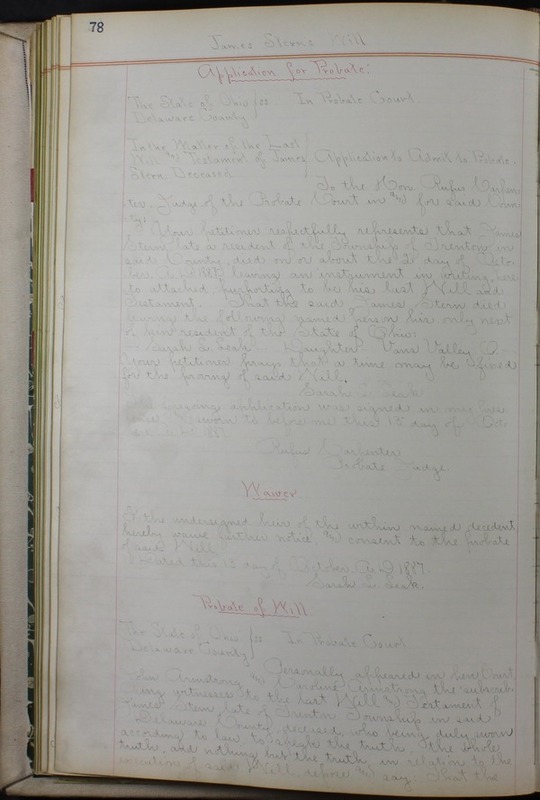 78
James Sterns Will
Application for Probate:
The State of Ohio } ss. In Probate Court.
Delaware County
In the Matter of the Last
Will and Testament of James } Application to Admit to Probate.
Stern Deceased
To the Hon. Rufus Carpen-
ter, Judge of the Probate Court in and for said Coun-
ty:
Your petitioner respectfully represents that James
Stern late a resident of the Township of Trenton in
said County, died on or about the day of Octo-
ber A.D. 1887 leaving an instrument in writing, here
to attached, purporting to be his last Will and
Testament. That the said James Stern died
leaving the following named person his only next
of kin resident of the State of Ohio:
Sarah E. Daughter Vans Valley O.
Your petitioner prays that a time may be fixed
for the proving of said Will.
Sarah E.
foregoing application was signed in my pres
ence & sworn to before me this 13 day of Oct.
1887.
Rufus Carpenter
Probate Judge
Waiver
I the undersigned heir of the within named decedent,
hereby waive further notice and consent to the probate
of said Will.
Dated this 13 day of October A.D. 1887.
Sarah E.
Probate of Will
The State of Ohio } ss In Probate Court
Delaware County
Personally appeared in open Court,
John Armstrong and Caroline Armstrong the subscrib-
ing witnesses to the last Will and Testament of
James Stern late of Trenton Township in said
Delaware County, deceased, who being duly sworn
according to law to speak the truth, the whole
truth, and nothing but the truth, in relation to the
execution of said Will, depose and say: That the